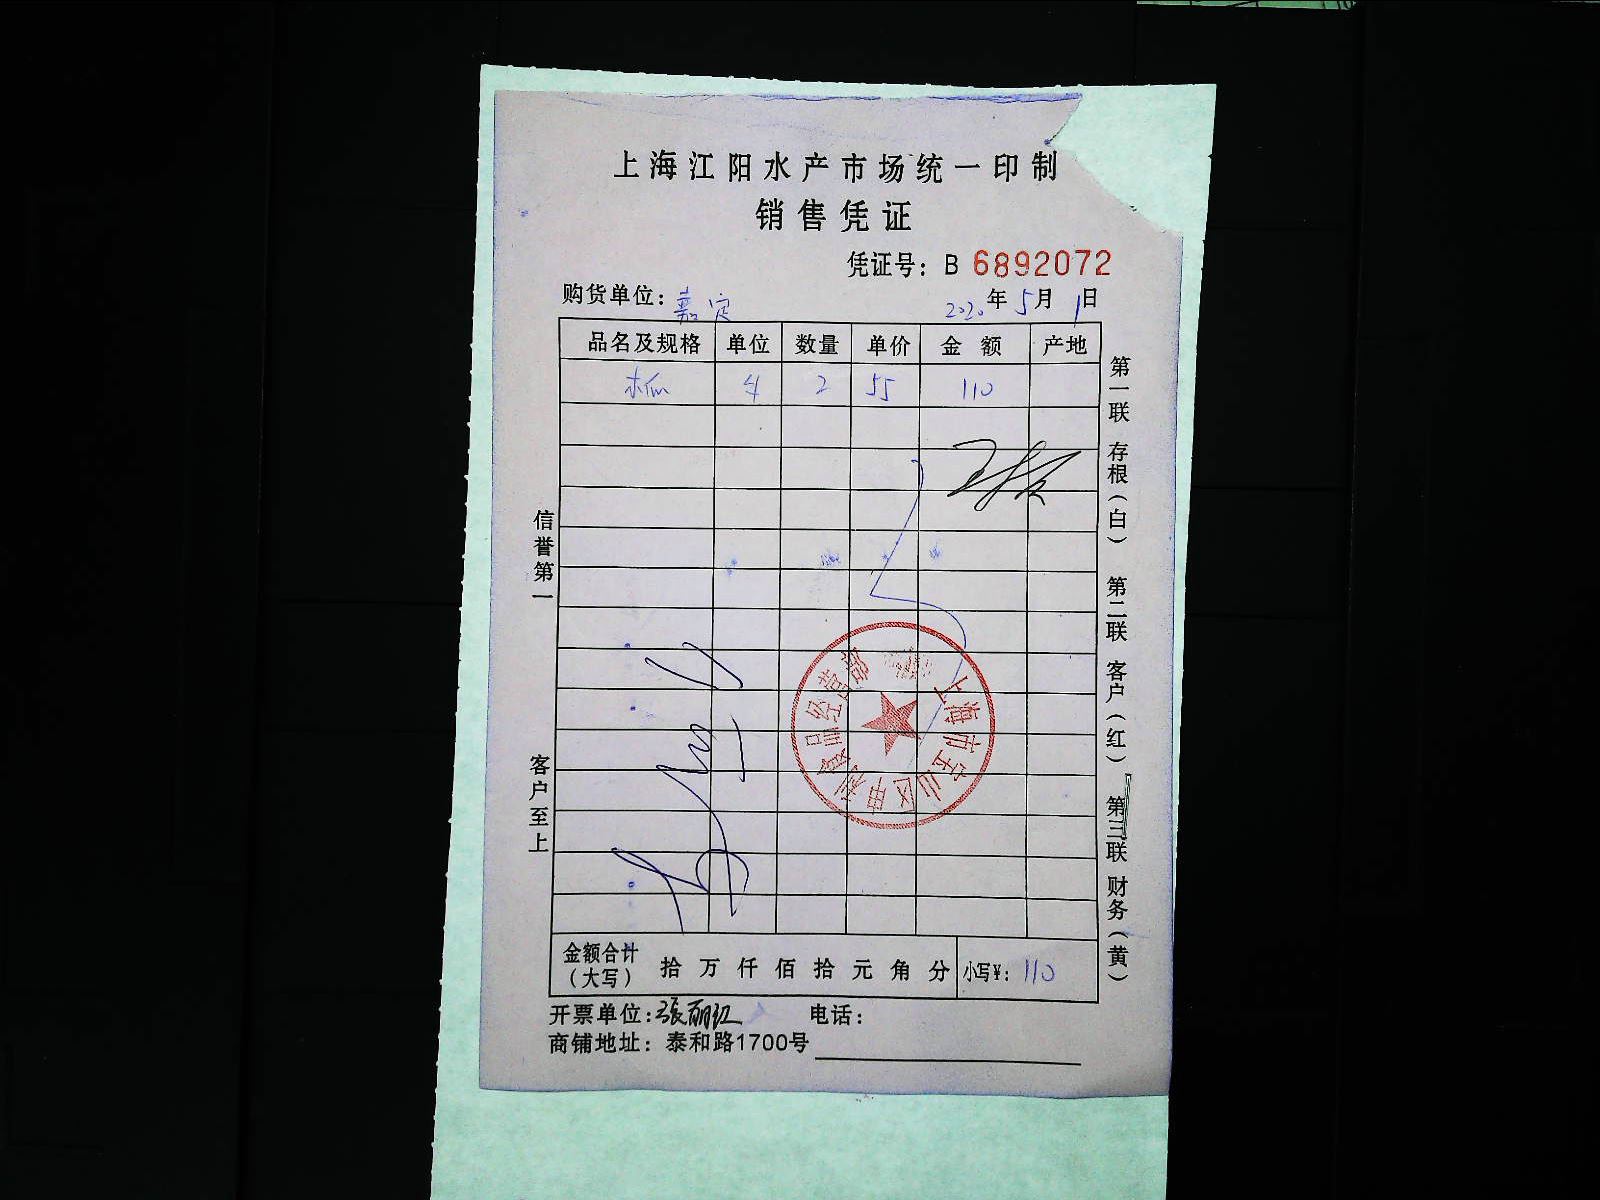 上海江阳水产市场统一印制
销售凭证
凭证号：B 6892072
购货单位：嘉定 2020年5月1日
品名及规格 单位 数量 单价 金额 产地
木瓜 2 55 110
信誉第一 客户至上
第一联 存根（白） 第二联 客户（红） 第三联 财务（黄）
上海市宝山区申利食品经营部
金额合计（大写） 拾万仟佰拾元角分 小写¥：110
开票单位：张丽红 电话：
商铺地址：泰和路1700号